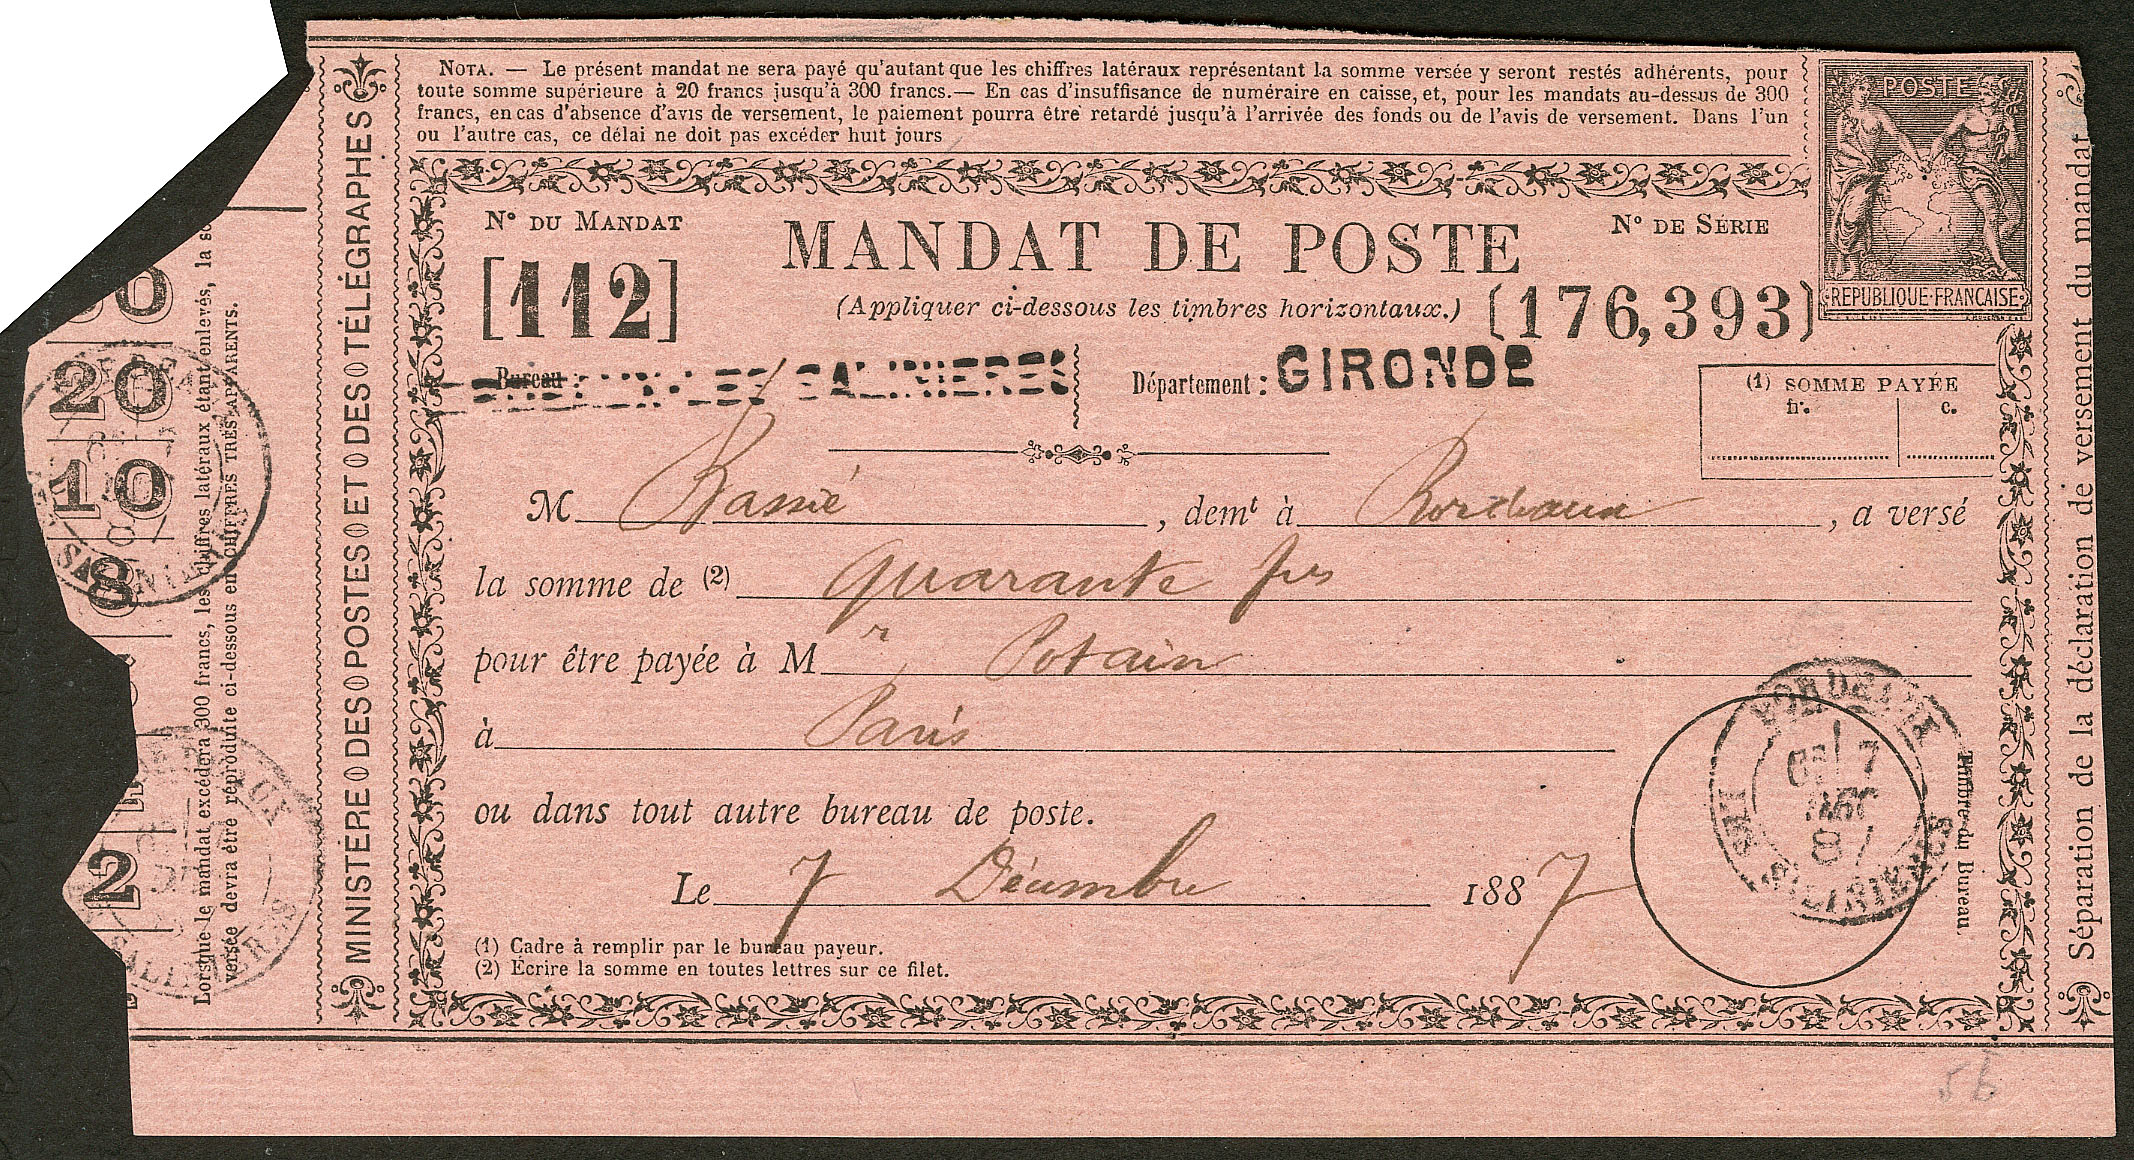 NOTA. — Le présent mandat ne sera payé qu'autant que les chiffres latéraux représentant la somme versée y seront restés adhérents, pour
toute somme supérieure à 20 francs jusqu'à 300 francs.— En cas d'insuffisance de numéraire en caisse, et, pour les mandats au-dessus de 300
francs, en cas d'absence d'avis de versement, le paiement pourra être retardé jusqu'à l'arrivée des fonds ou de l'avis de versement. Dans l'un
ou l'autre cas, ce délai ne doit pas excéder huit jours
POSTE
REPUBLIQUE FRANCAISE
N° DU MANDAT
[112]
MANDAT DE POSTE
(Appliquer ci-dessous les timbres horizontaux.)
N° DE SÉRIE
(176,393)
Bureau : LES SALINIERES
Département : GIRONDE
(1) SOMME PAYÉE
fr. c.
M Bassié, demt à Bordeaux, a versé
la somme de (2) quarante frs
pour être payée à M r Potain
à Paris
ou dans tout autre bureau de poste.
Le 7 Décembre 1887
(1) Cadre à remplir par le bureau payeur.
(2) Écrire la somme en toutes lettres sur ce filet.
BORDEAUX
7
DEC
87
LES SALINIERES
Timbre du Bureau.
Séparation de la déclaration de versement du mandat
MINISTÈRE DES POSTES ET DES TÉLÉGRAPHES
Lorsque le mandat excédera 300 francs, les chiffres latéraux étant enlevés, la
versée devra être reproduite ci-dessous en CHIFFRES TRÈS APPARENTS.
20
10
8
2
56